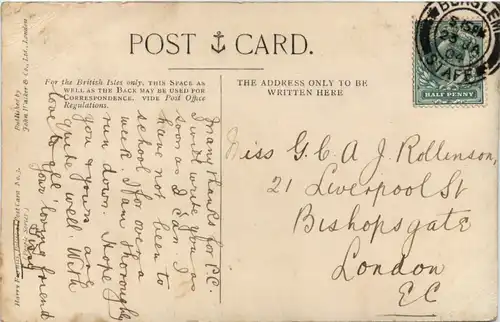 POST CARD.
For the British Isles only, this Space as
well as the Back may be used for
Correspondence. vide Post Office
Regulations.
THE ADDRESS ONLY TO BE
WRITTEN HERE
HALF PENNY
Published by
John Walker & Co., Ltd., London
Many thanks for P.C.
I will write you as
soon as I can. I
have not been to
school for over a
week. I am thoroughly
run down. Hope
you & yours are
quite well With
love to all
Your loving friend
Miss G. C. A. J. Rollinson,
21 Liverpool St
Bishopsgate
London
E.C